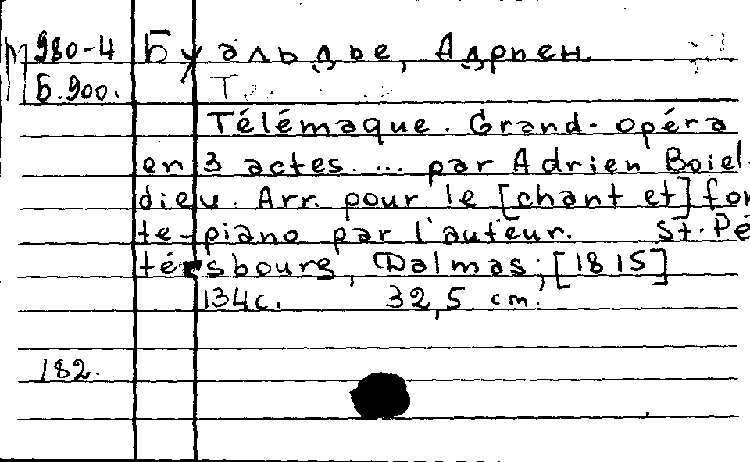 980-4 Буальдье, Адриен.
Б.900. Т
Télémaque. Grand-opéra
en 3 actes.... par Adrien Boiel-
dieu. Arr. pour le [chant et] for
te-piano par l'auteur. St.-Pé
tersbourg, Dalmas, [1815]
134с. 32,5 cm.
182.